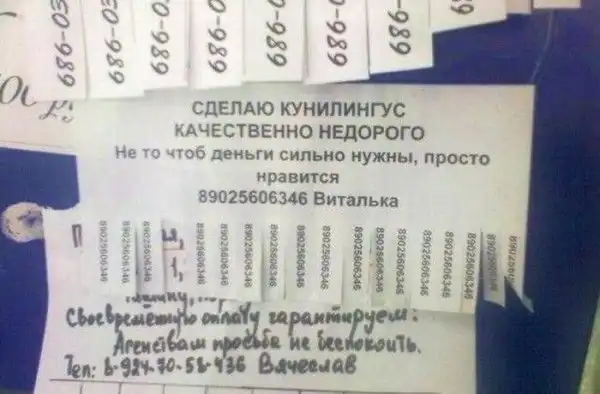 686-03
686-03
СДЕЛАЮ КУНИЛИНГУС
КАЧЕСТВЕННО НЕДОРОГО
Не то чтоб деньги сильно нужны, просто
нравится
89025606346 Виталька
89025606346
89025606346
89025606346
89025606346
89025606346
89025606346
89025606346
89025606346
89025606346
89025606346
89025606346
89025606346
89025606346
89025606346
Своевременную оплату гарантируем!
Агенствам просьба не беспокоить.
Тел: 8-924-70-58-436 Вячеслав